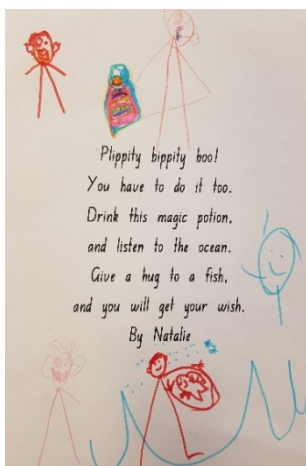 Plippity bippity boo!
You have to do it too.
Drink this magic potion,
and listen to the ocean.
Give a hug to a fish,
and you will get your wish.
By Natalie